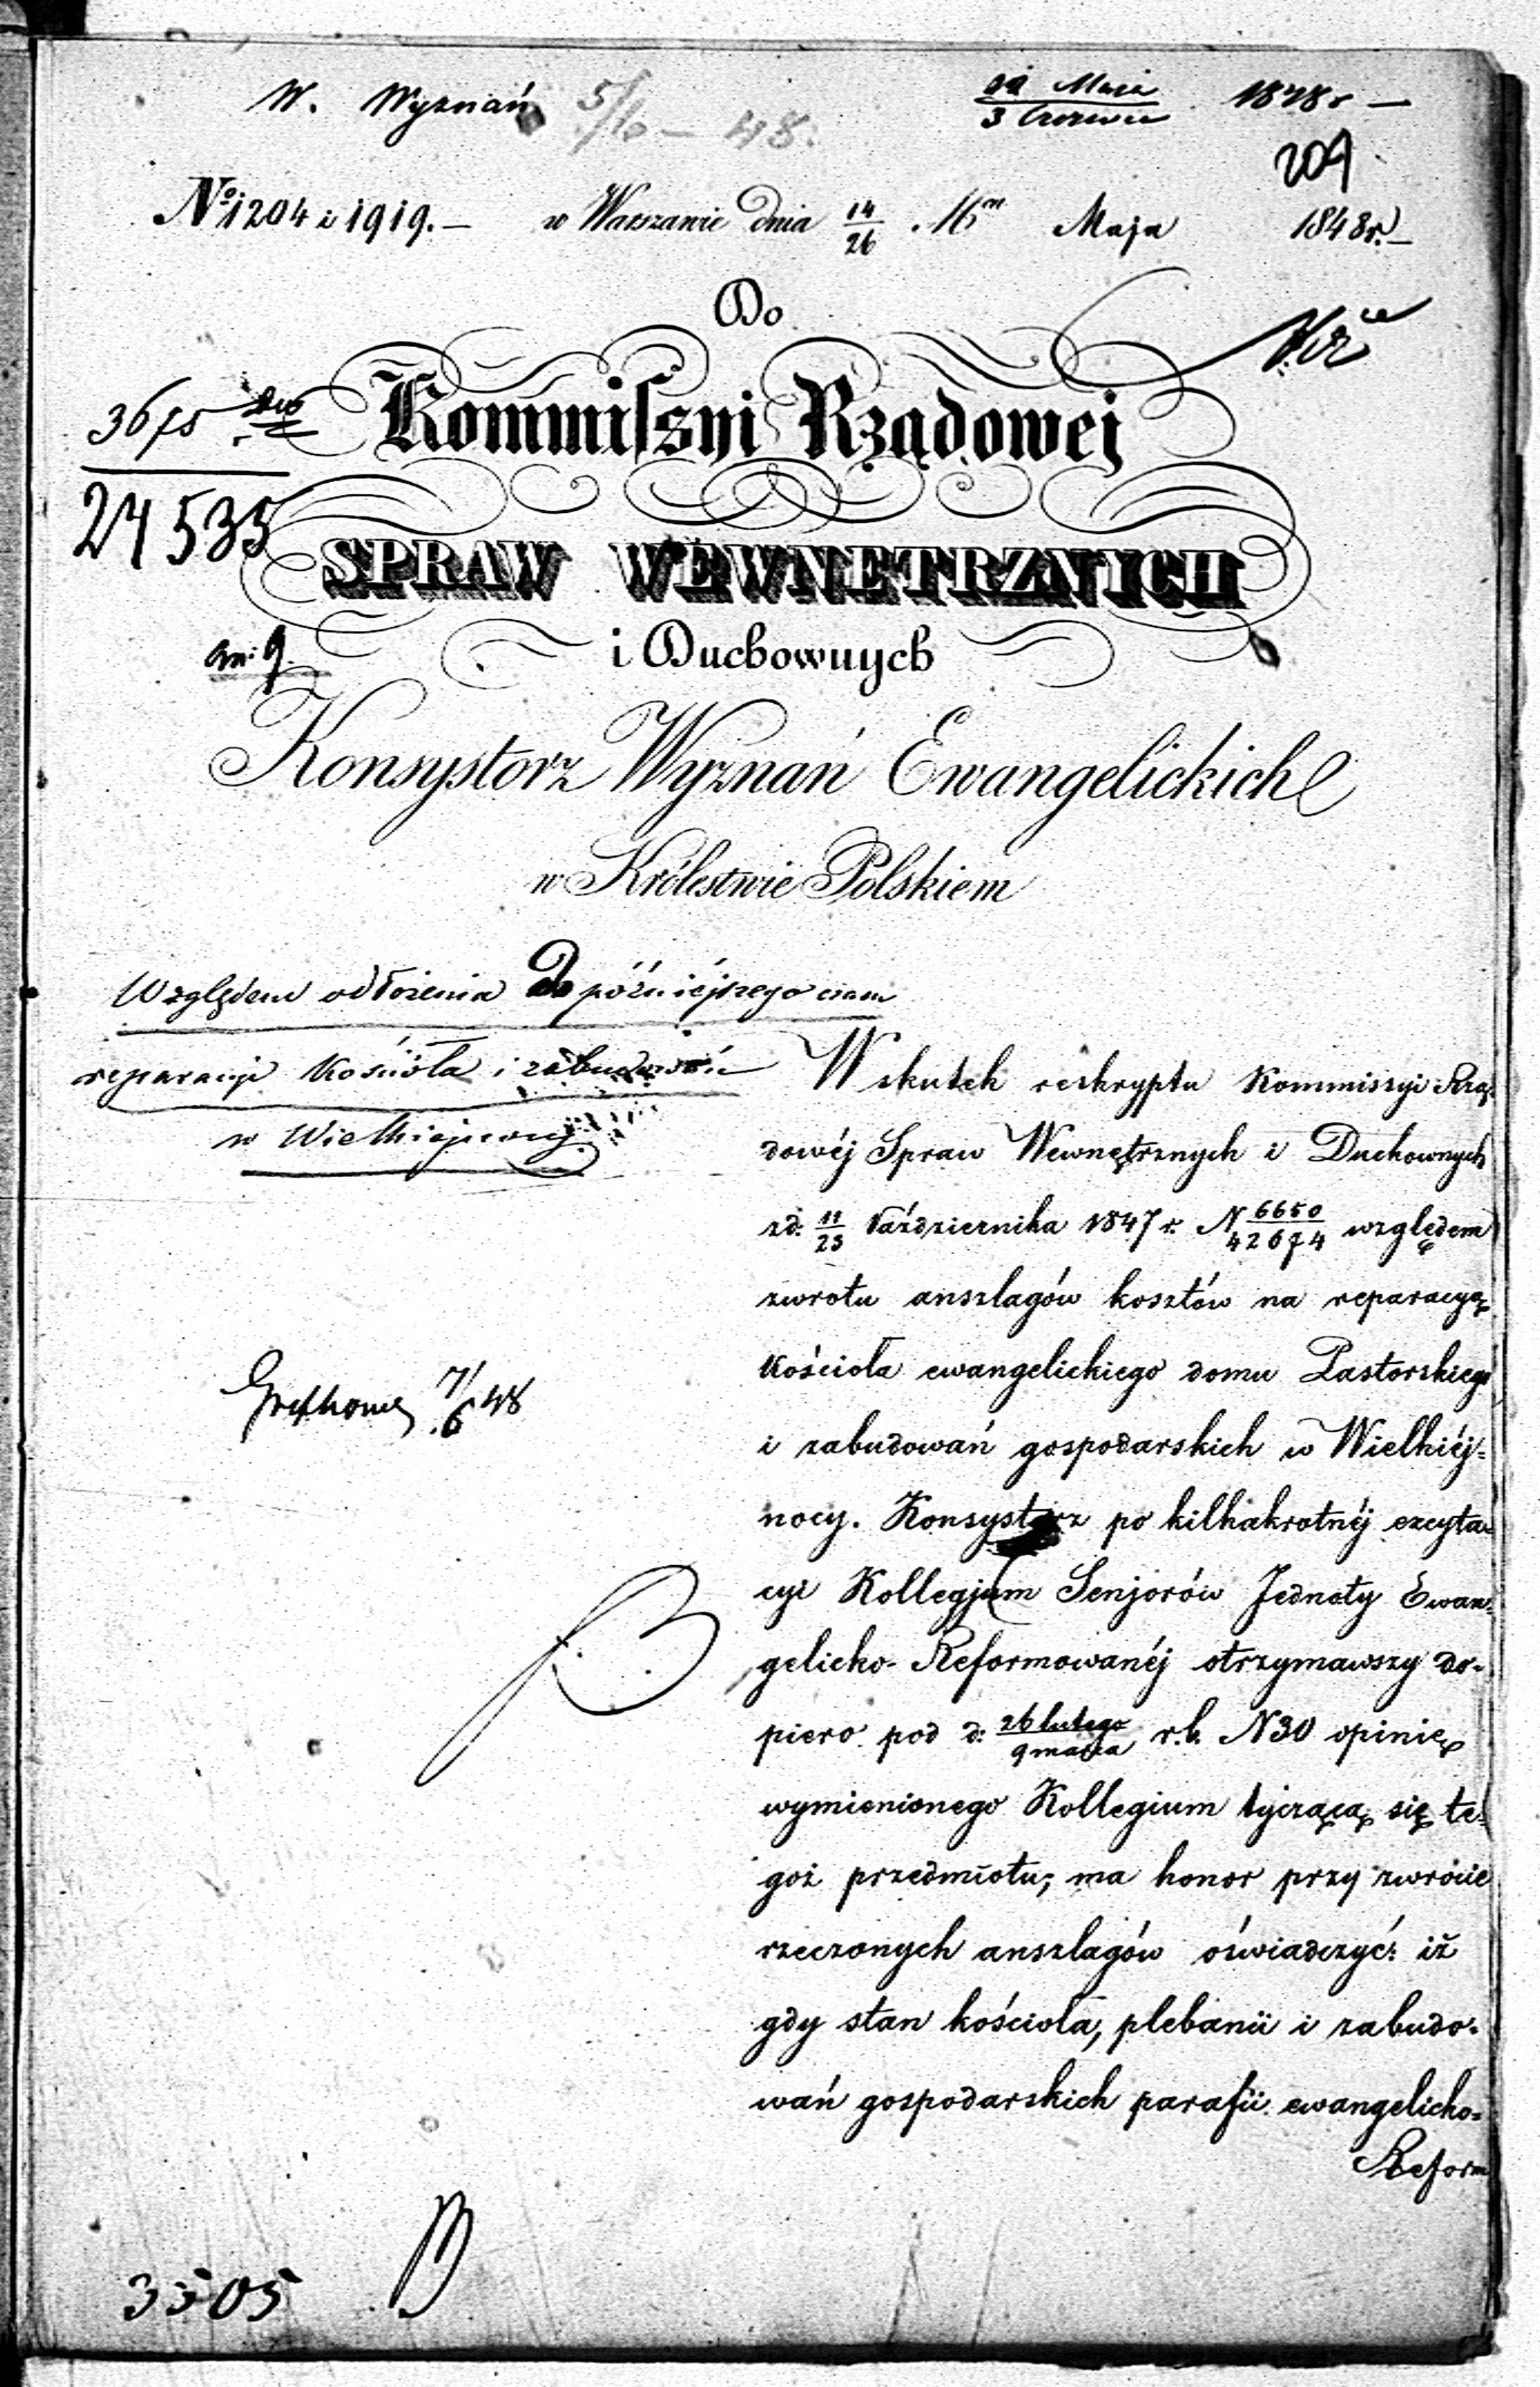 W. Wyznań 5/6 – 48.
Maja 1848 r –
3 Czerwca
209
№ 1204 i 1919. – w Warszawie dnia 14/26 Mca Maja 1848 r. –
Do
Kommissyi Rządowej
3675
24535
SPRAW WEWNĘTRZNYCH
i Duchownych
an: 9.
Konsystorz Wyznań Ewangelickich
w Królestwie Polskiem
Względem odłożenia do późniéjszego czasu
reparacyi Kościoła i zabudowań
w Wielkiejnocy
Wskutek reskryptu Kommissyi Rzą-
dowéj Spraw Wewnętrznych i Duchownych
z d: 11/23 Października 1847 r. N 6650/42674 względem
zwrotu anszlagów kosztów na reparacyą
Kościoła ewangelickiego domu Pastorskiego
i zabudowań gospodarskich w Wielkiéj-
nocy. Konsystorz po kilkakrotnéj excyta-
cyi Kollegjum Senjorów Jednoty Ewan-
gelicko-Reformowanéj otrzymawszy do-
piero pod d: 26 lutego/9 marca r. b. N 30 opinię
wymienionego Kollegium tyczącą się te-
goż przedmiotu, ma honor przy zwrocie
rzeczonych anszlagów oświadczyć: iż
gdy stan kościoła, plebanii i zabudo-
wań gospodarskich parafii ewangelicko-
Reform
7/6 48
3505